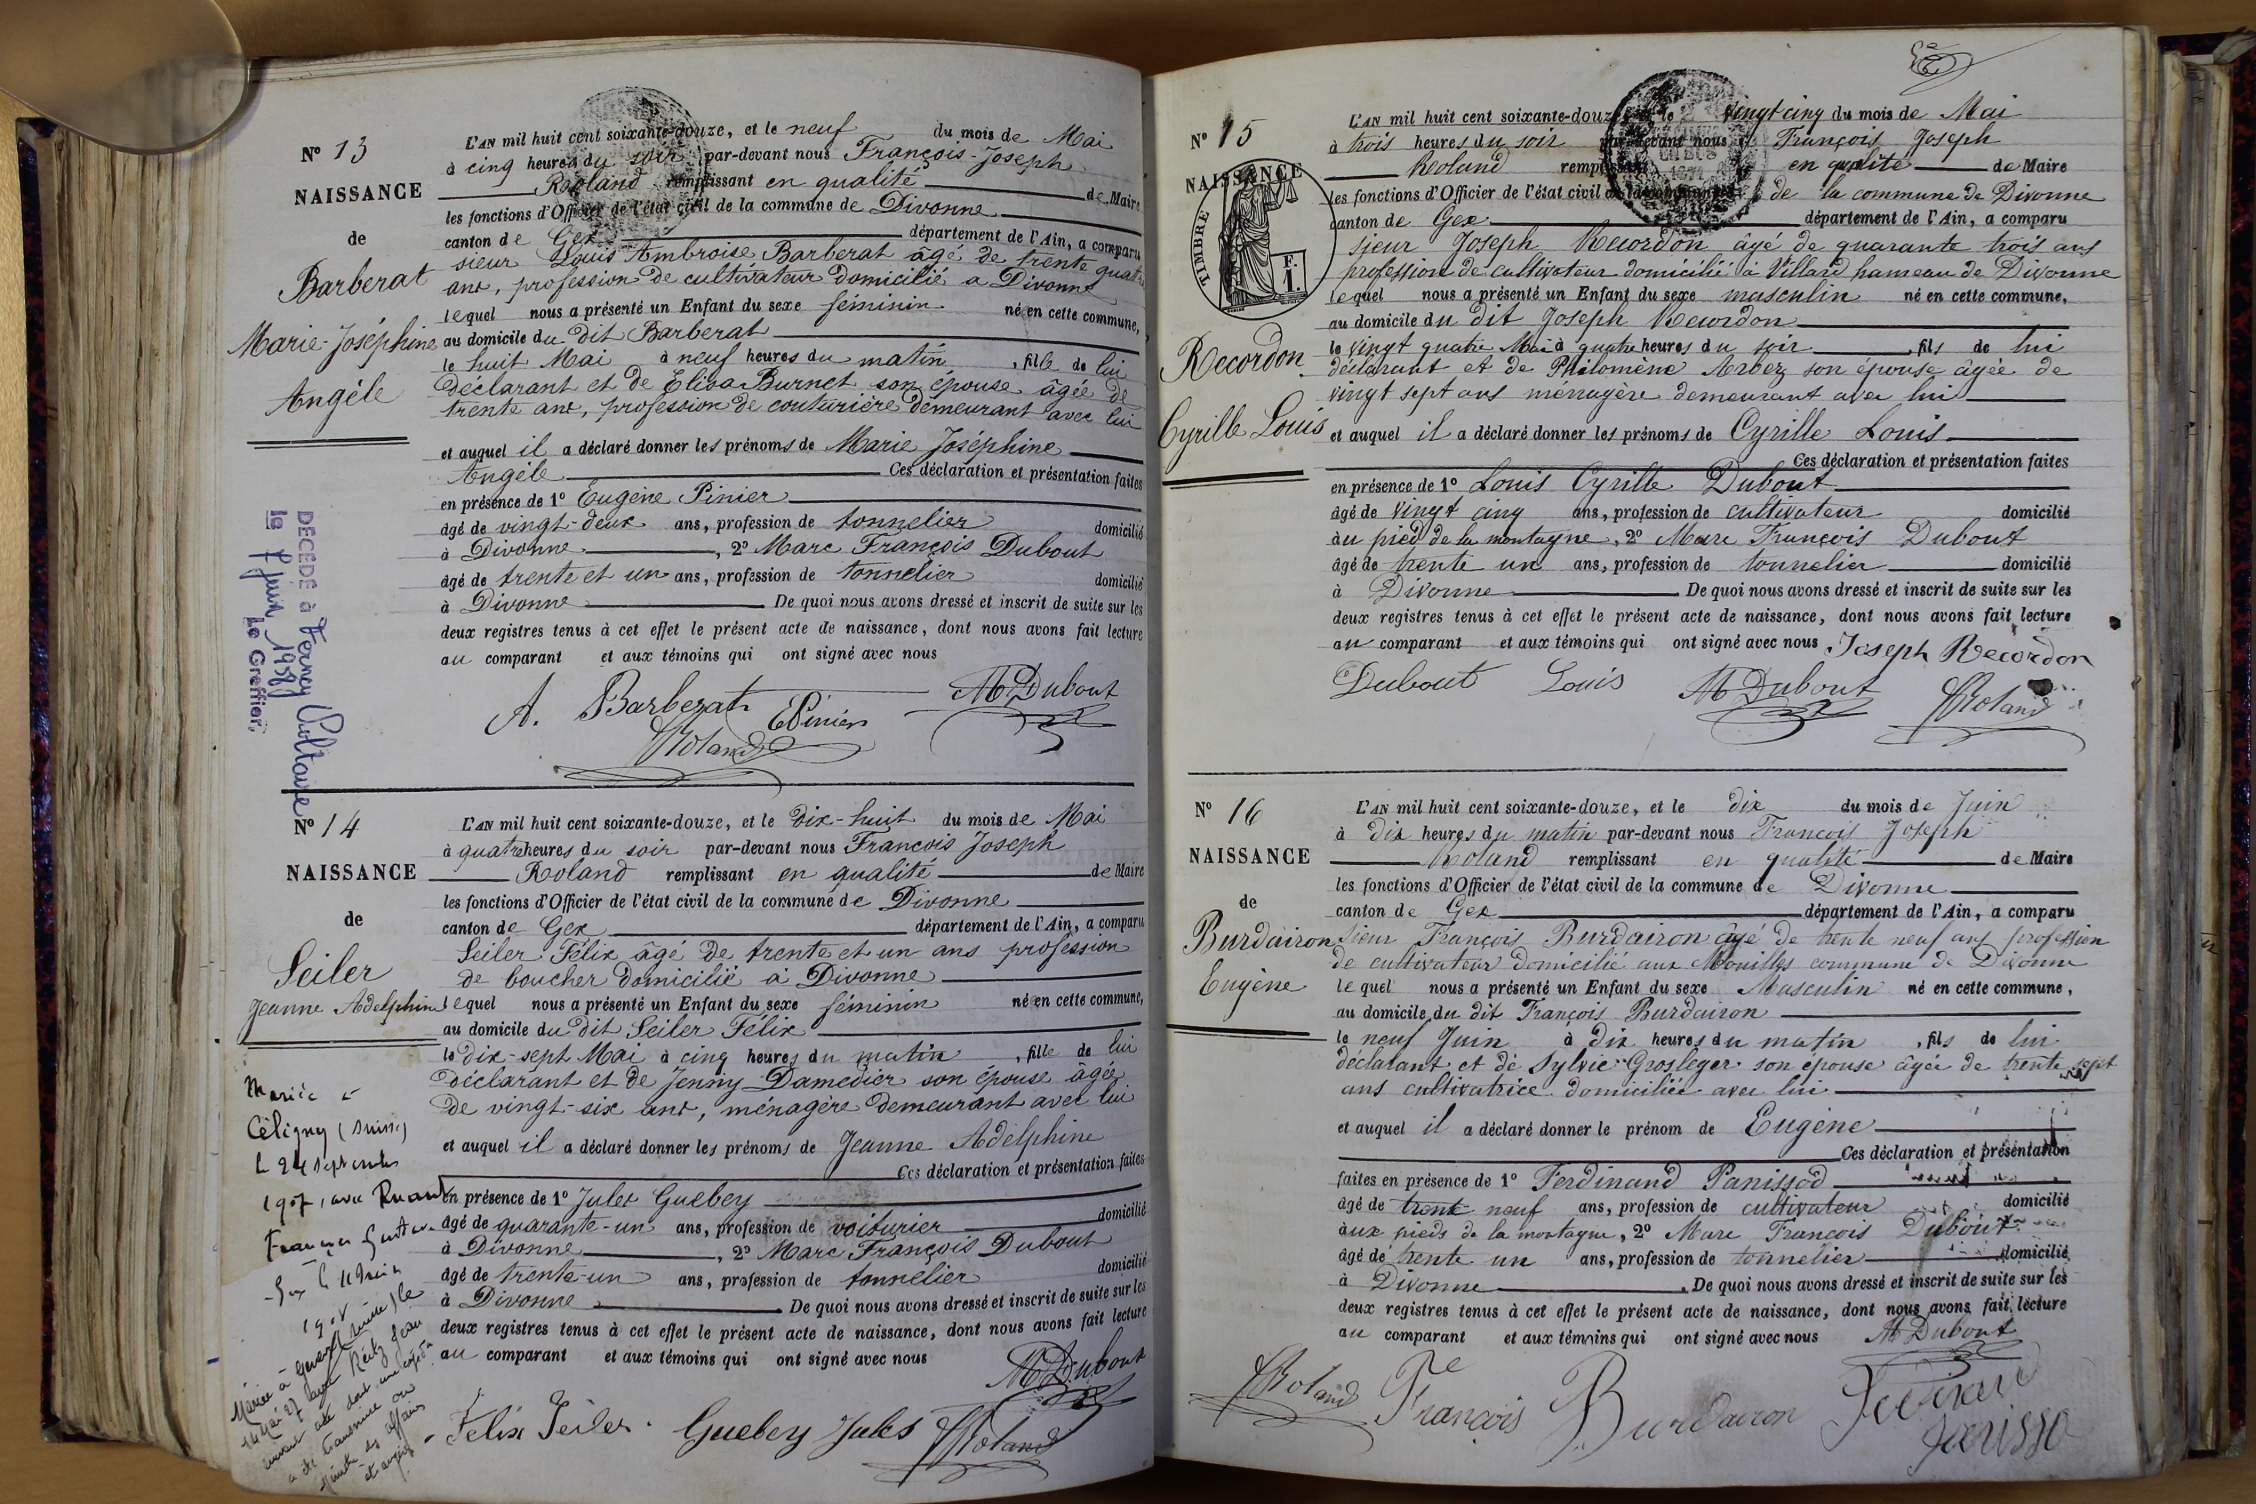 Nº 13
NAISSANCE
de
Barberat
Marie-Joséphine
Angèle
L'AN mil huit cent soixante-douze, et le neuf du mois de Mai
à cinq heures du soir par-devant nous François-Joseph
Roland remplissant en qualité de Maire
les fonctions d'Officier de l'état civil de la commune de Divonne
canton de Gex département de l'Ain, a comparu
sieur Louis Ambroise Barberat âgé de trente quatre
ans, profession de cultivateur domicilié a Divonne
lequel nous a présenté un Enfant du sexe féminin né en cette commune,
au domicile du dit Barberat
le huit Mai à neuf heures du matin, fille de lui
déclarant et de Elisa Burnet son épouse âgée de
trente ans, profession de couturière demeurant avec lui
et auquel il a déclaré donner les prénoms de Marie Joséphine
Angèle Ces déclaration et présentation faites
en présence de 1º Eugène Pinier
âgé de vingt-deux ans, profession de tonnelier domicilié
à Divonne, 2º Marc François Dubout
âgé de trente et un ans, profession de tonnelier domicilié
à Divonne De quoi nous avons dressé et inscrit de suite sur les
deux registres tenus à cet effet le présent acte de naissance, dont nous avons fait lecture
au comparant et aux témoins qui ont signé avec nous
A. Barberat EPinier M Dubout
Roland
DÉCÉDÉ à Ferney Voltaire
le Juin
Le Greffier.
Nº 14
NAISSANCE
de
Seiler
Jeanne Adelphine
L'AN mil huit cent soixante-douze, et le dix-huit du mois de Mai
à quatre heures du soir par-devant nous François Joseph
Roland remplissant en qualité de Maire
les fonctions d'Officier de l'état civil de la commune de Divonne
canton de Gex département de l'Ain, a comparu
Seiler Félix âgé de trente et un ans profession
de boucher domicilié à Divonne
lequel nous a présenté un Enfant du sexe féminin né en cette commune,
au domicile du dit Seiler Félix
le dix-sept Mai à cinq heures du matin, fille de lui
déclarant et de Jenny Damedier son épouse âgée
de vingt-six ans, ménagère demeurant avec lui
et auquel il a déclaré donner les prénoms de Jeanne Adelphine
Ces déclaration et présentation faites
en présence de 1º Jules Guebey
âgé de quarante-un ans, profession de voiturier domicilié
à Divonne, 2º Marc François Dubout
âgé de trente-un ans, profession de tonnelier domicilié
à Divonne. De quoi nous avons dressé et inscrit de suite sur les
deux registres tenus à cet effet le présent acte de naissance, dont nous avons fait lecture
au comparant et aux témoins qui ont signé avec nous
M Dubout
Félix Seiler. Guebey Jules Roland
Mariée à
Céligny (Suisse)
le 24 septembre
1907, avec
François
1908
Mariée à
14 Mai 27 avec Jean
Nº 15
NAISSANCE
TIMBRE
F.
1.
Recordon
Cyrille Louis
L'AN mil huit cent soixante-douze, et le vingt-cinq du mois de Mai
à trois heures du soir par-devant nous François Joseph
Roland remplissant en qualité de Maire
les fonctions d'Officier de l'état civil de la commune de Divonne
canton de Gex département de l'Ain, a comparu
sieur Joseph Recordon âgé de quarante trois ans
profession de cultivateur domicilié à Villard hameau de Divonne
lequel nous a présenté un Enfant du sexe masculin né en cette commune,
au domicile du dit Joseph Recordon
le vingt quatre Mai à quatre heures du soir, fils de lui
déclarant et de Philomène Arbez son épouse âgée de
vingt sept ans ménagère demeurant avec lui
et auquel il a déclaré donner les prénoms de Cyrille Louis
Ces déclaration et présentation faites
en présence de 1º Louis Cyrille Dubout
âgé de vingt cinq ans, profession de cultivateur domicilié
au pied de la montagne, 2º Marc François Dubout
âgé de trente un ans, profession de tonnelier domicilié
à Divonne De quoi nous avons dressé et inscrit de suite sur les
deux registres tenus à cet effet le présent acte de naissance, dont nous avons fait lecture
au comparant et aux témoins qui ont signé avec nous Joseph Recordon
Dubout Louis M Dubout Roland
Nº 16
NAISSANCE
de
Burdairon
Eugène
L'AN mil huit cent soixante-douze, et le dix du mois de Juin
à dix heures du matin par-devant nous François Joseph
Roland remplissant en qualité de Maire
les fonctions d'Officier de l'état civil de la commune de Divonne
canton de Gex département de l'Ain, a comparu
sieur François Burdairon âgé de trente neuf ans profession
de cultivateur domicilié aux Mouilles commune de Divonne
lequel nous a présenté un Enfant du sexe Masculin né en cette commune,
au domicile du dit François Burdairon
le neuf Juin à dix heures du matin, fils de lui
déclarant et de Sylvie Grosléger son épouse âgée de trente sept
ans cultivatrice domiciliée avec lui
et auquel il a déclaré donner le prénom de Eugène
Ces déclaration et présentation
faites en présence de 1º Ferdinand Panissod
âgé de trente neuf ans, profession de cultivateur domicilié
aux pieds de la montagne, 2º Marc François Dubout
âgé de trente un ans, profession de tonnelier domicilié
à Divonne. De quoi nous avons dressé et inscrit de suite sur les
deux registres tenus à cet effet le présent acte de naissance, dont nous avons fait lecture
au comparant et aux témoins qui ont signé avec nous M Dubout
Roland François Burdairon